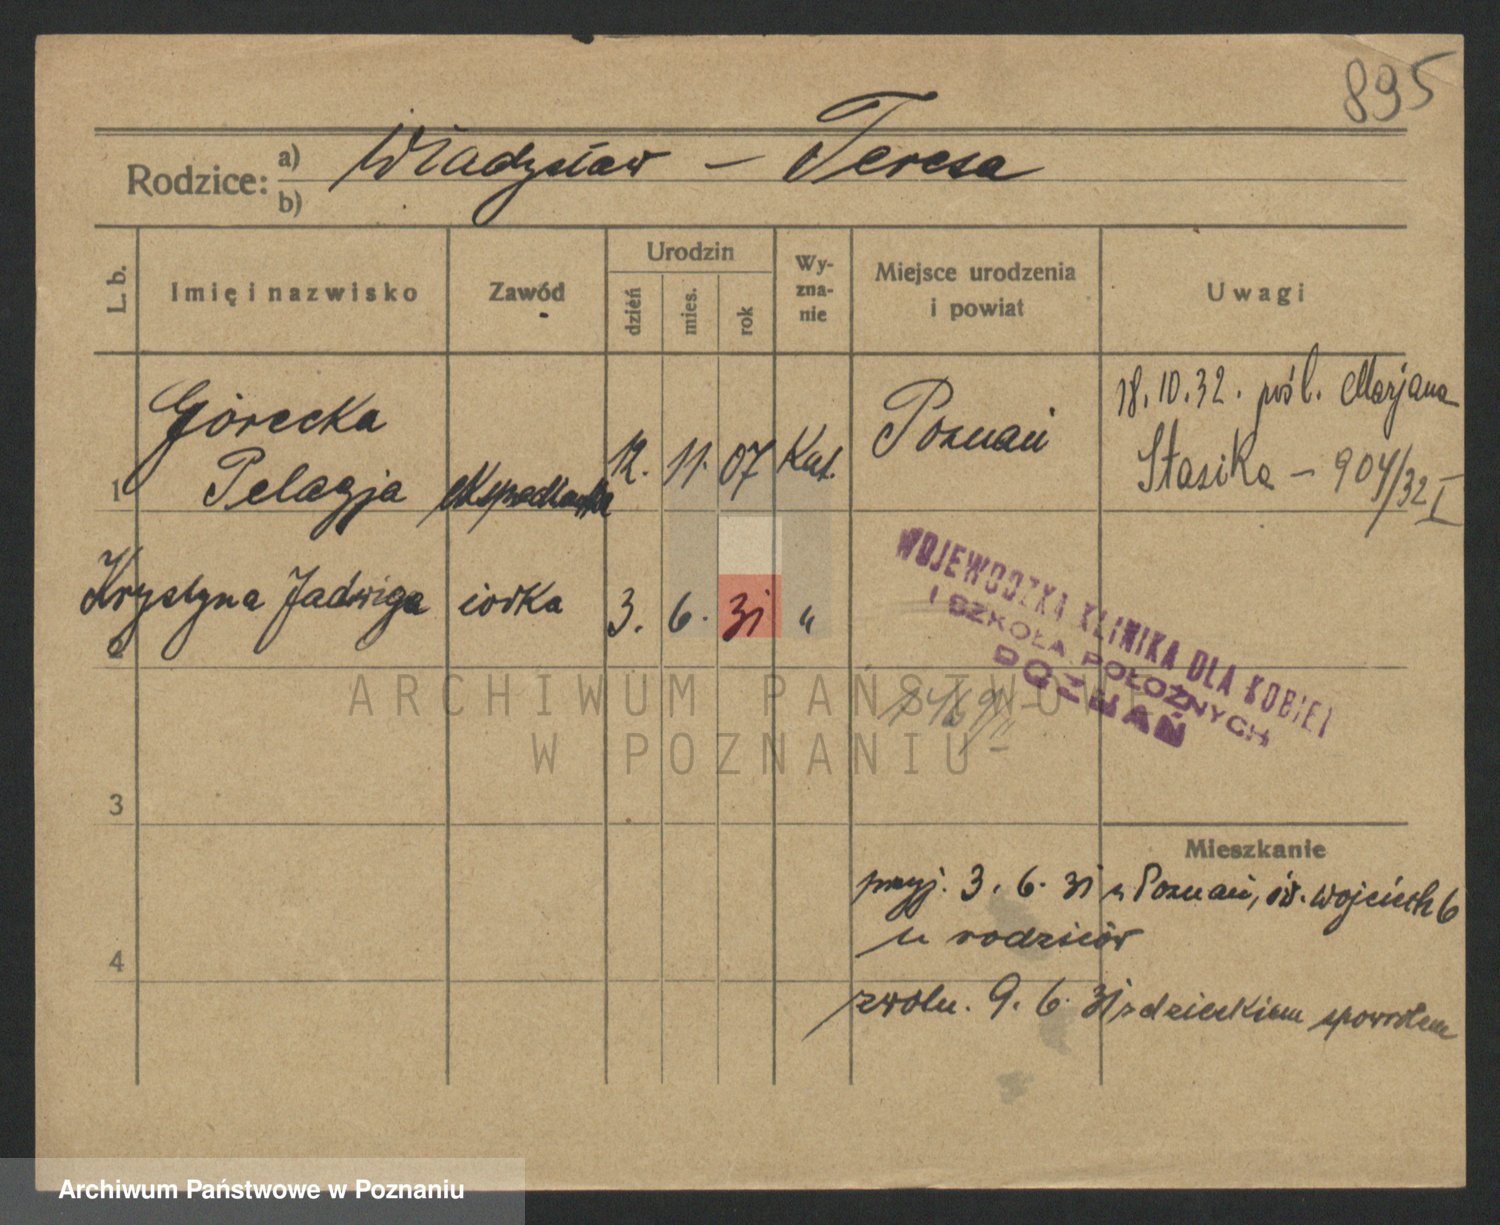 895
Rodzice: a) Władysław – Teresa
b)
L. b.
Imię i nazwisko
Zawód
Urodzin
dzień
mies.
rok
Wy-
zna-
nie
Miejsce urodzenia
i powiat
Uwagi
1
Górecka
Pelagja
12. 11. 07 Kat.
Poznań
18.10.32. pośl. Marjana
Stasika – 904/32 I
2
Krystyna Jadwiga córka 3. 6. 31 "
WOJEWÓDZKA KLINIKA DLA KOBIET
I SZKOŁA POŁOŻNYCH
POZNAŃ
ARCHIWUM PAŃSTWOWE
W POZNANIU
3
Mieszkanie
przyj. 3. 6. 31 z Poznań, św. Wojciech 6
u rodziców
4
zwoln. 9. 6. 31 z dzieckiem spowrotem
Archiwum Państwowe w Poznaniu